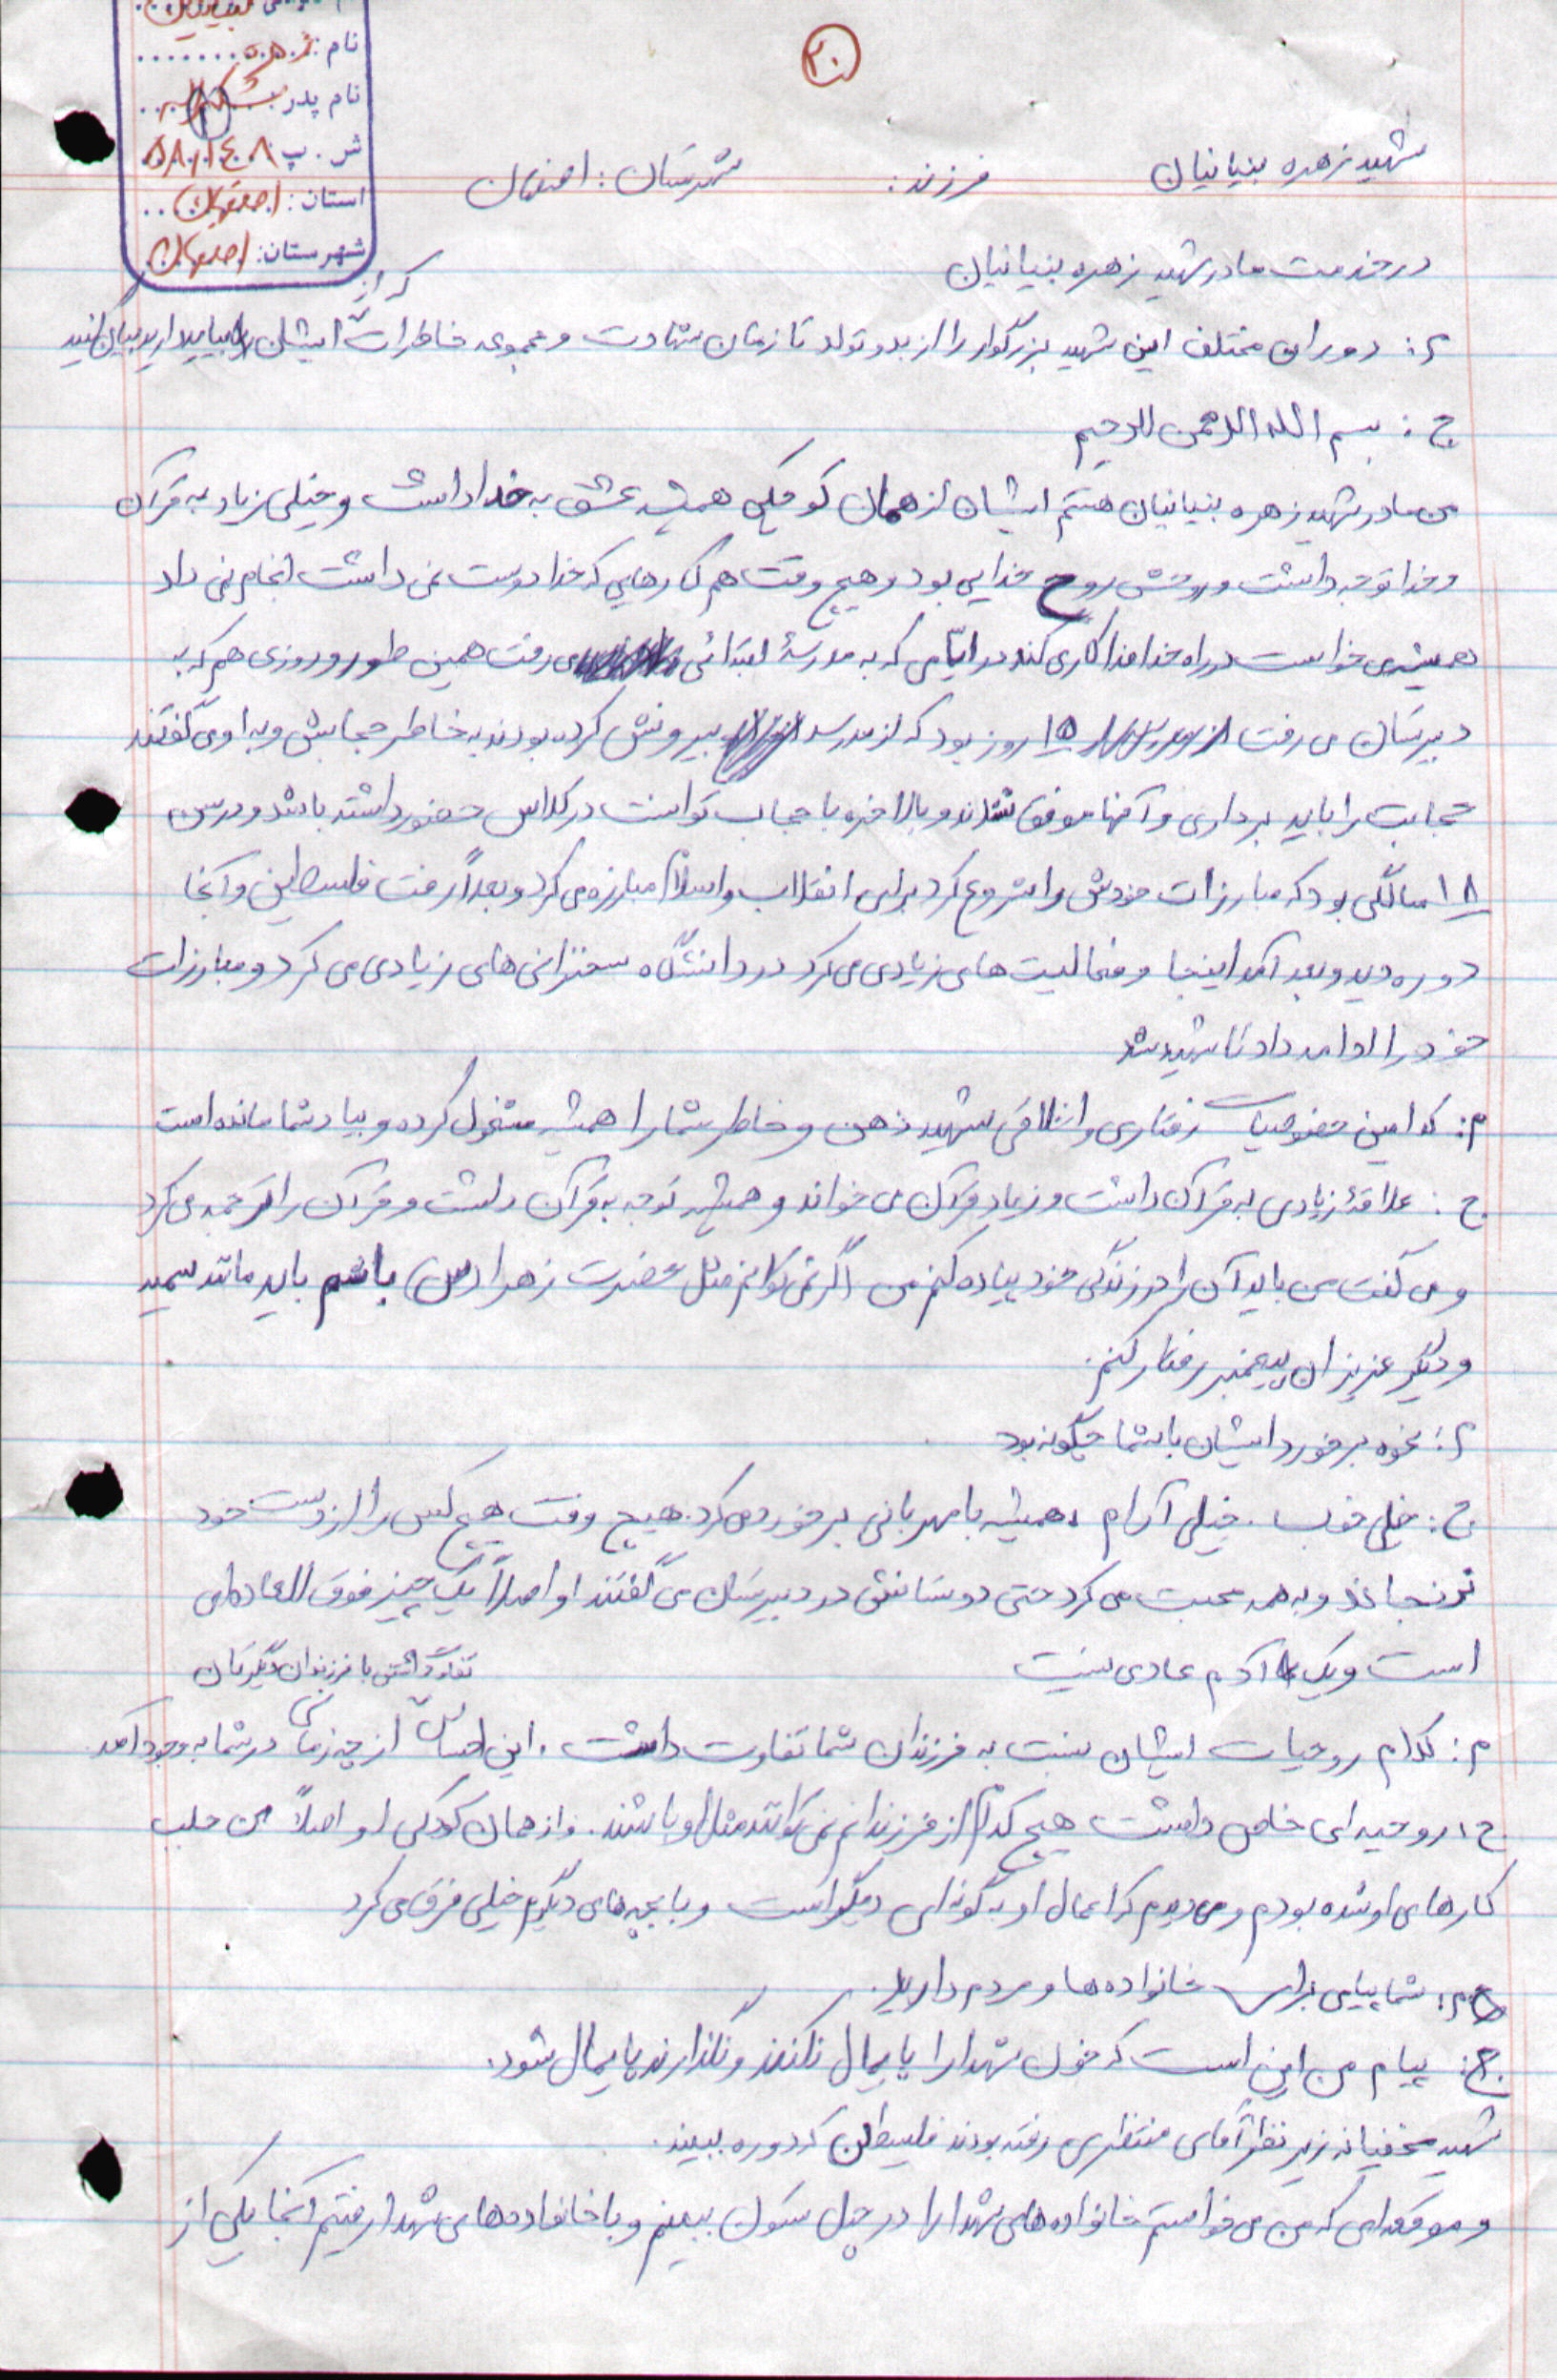 ۲۰
نام: زهره
نام پدر:
ش . پ ۵۸۱۱۴۰۸
استان: اصفهان
شهرستان: اصفهان
شهید زهره بنیانیان فرزند: شهرستان: اصفهان
در خدمت مادر شهید زهره بنیانیان
م: دوران مختلف این شهید بزرگوار را از بدو تولد تا زمان شهادت و مجموعه خاطرات که از ایشان بیاد دارید بیان کنید
ج: بسم الله الرحمن الرحیم
من مادر شهید زهره بنیانیان هستم ایشان از همان کوچکی همیشه عشق به خدا داشت و خیلی زیاد به قرآن
و خدا توجه داشت و روحش روح خدایی بود و هیچ وقت هم کارهایی که خدا دوست نمی داشت انجام نمی داد
همیشه می خواست در راه خدا فداکاری کند در ایامی که به مدرسهٔ ابتدائی می رفت همین طور و روزی هم که به
دبیرستان می رفت ۱۵ روز بود که از مدرسه بیرونش کرده بودند به خاطر حجابش و به او می گفتند
حجابت را باید برداری و آنها موفق نشدند و بالاخره با حجاب توانست در کلاس حضور داشته باشد و درسن
۱۸ سالگی بود که مبارزات خودش را شروع کرد برای انقلاب و اسلام مبارزه می کرد و بعداً رفت فلسطین و آنجا
دوره دید و بعد آمد اینجا و فعالیت های زیادی می کرد در دانشگاه سخنرانی های زیادی می کرد و مبارزات
خود را ادامه داد تا شهید شد
م: کدامین خصوصیات رفتاری و اخلاقی شهید ذهن و خاطر شما را همیشه مشغول کرده و بیاد شما مانده است
ج: علاقهٔ زیادی به قرآن داشت و زیاد قرآن می خواند و همیشه توجه به قرآن داشت و قرآن را ترجمه می کرد
و می گفت من باید آن را در زندگی خود پیاده کنم من اگر نمی توانم مثل حضرت زهرا (س) باشم باید مانند سمیه
و دیگر عزیزان پیغمبر رفتار کنم.
م: نحوه برخورد ایشان با شما چگونه بود
ج: خیلی خوب. خیلی آرام، همیشه با مهربانی برخورد می کرد. هیچ وقت هیچ کس را از دست خود
نرنجاند و به همه محبت می کرد حتی دوستانش در دبیرستان می گفتند او اصلاً یک چیز فوق العاده ای
است و یک آدم عادی نیست
تفاوت داشتن با فرزندان دیگرتان
م: کدام روحیات ایشان نسبت به فرزندان شما تفاوت داشت. این احساس از چه زمانی در شما به وجود آمد
ج: روحیه ای خاص داشت هیچ کدام از فرزندانم نمی توانند مثل او باشند. و از همان کودکی او اصلاً من جلب
کارهای او شده بودم و می دیدم که اعمال او به گونه ای دیگر است و با بچه های دیگرم خیلی فرق می کرد
م: شما پیامی برای خانواده ها و مردم دارید.
ج: پیام من این است که خون شهدا را پایمال نکنند و نگذارند پایمال شود.
شهید مخفیانه زیر نظر آقای منتظری رفته بودند فلسطین که دوره ببیند.
و موقعه ای که من می خواستم خانواده های شهدا را در چهل ستون ببینم و با خانواده های شهدا رفتیم آنجا یکی از